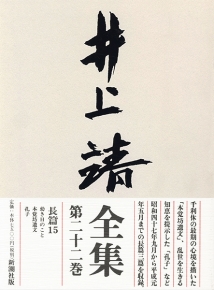 井上靖
千利休の最期の心境を描いた
「本覚坊遺文」、乱世を生きる
知恵を提示した「孔子」など
昭和四十七年九月から平成元
年五月までの長篇三篇を収録。
全集
第二十二巻
長篇15
幼き日のこと
本覚坊遺文
孔子
新潮社版